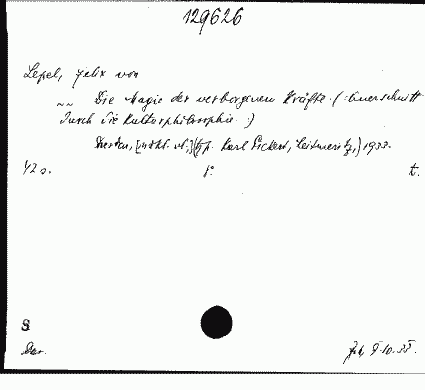 129626
Lepel, Felix von
~~ Die Magie der verborgenen Kräfte. (:Querschnitt
durch die Kulturphilosophie.:)
Dresden, Karl Pickert, Leitmeritz,) 1933.
42 s. 8° t.
S
Dar. 9.10.35.